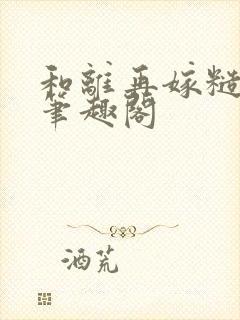 和離再嫁糙
筆趣閣
酒荒